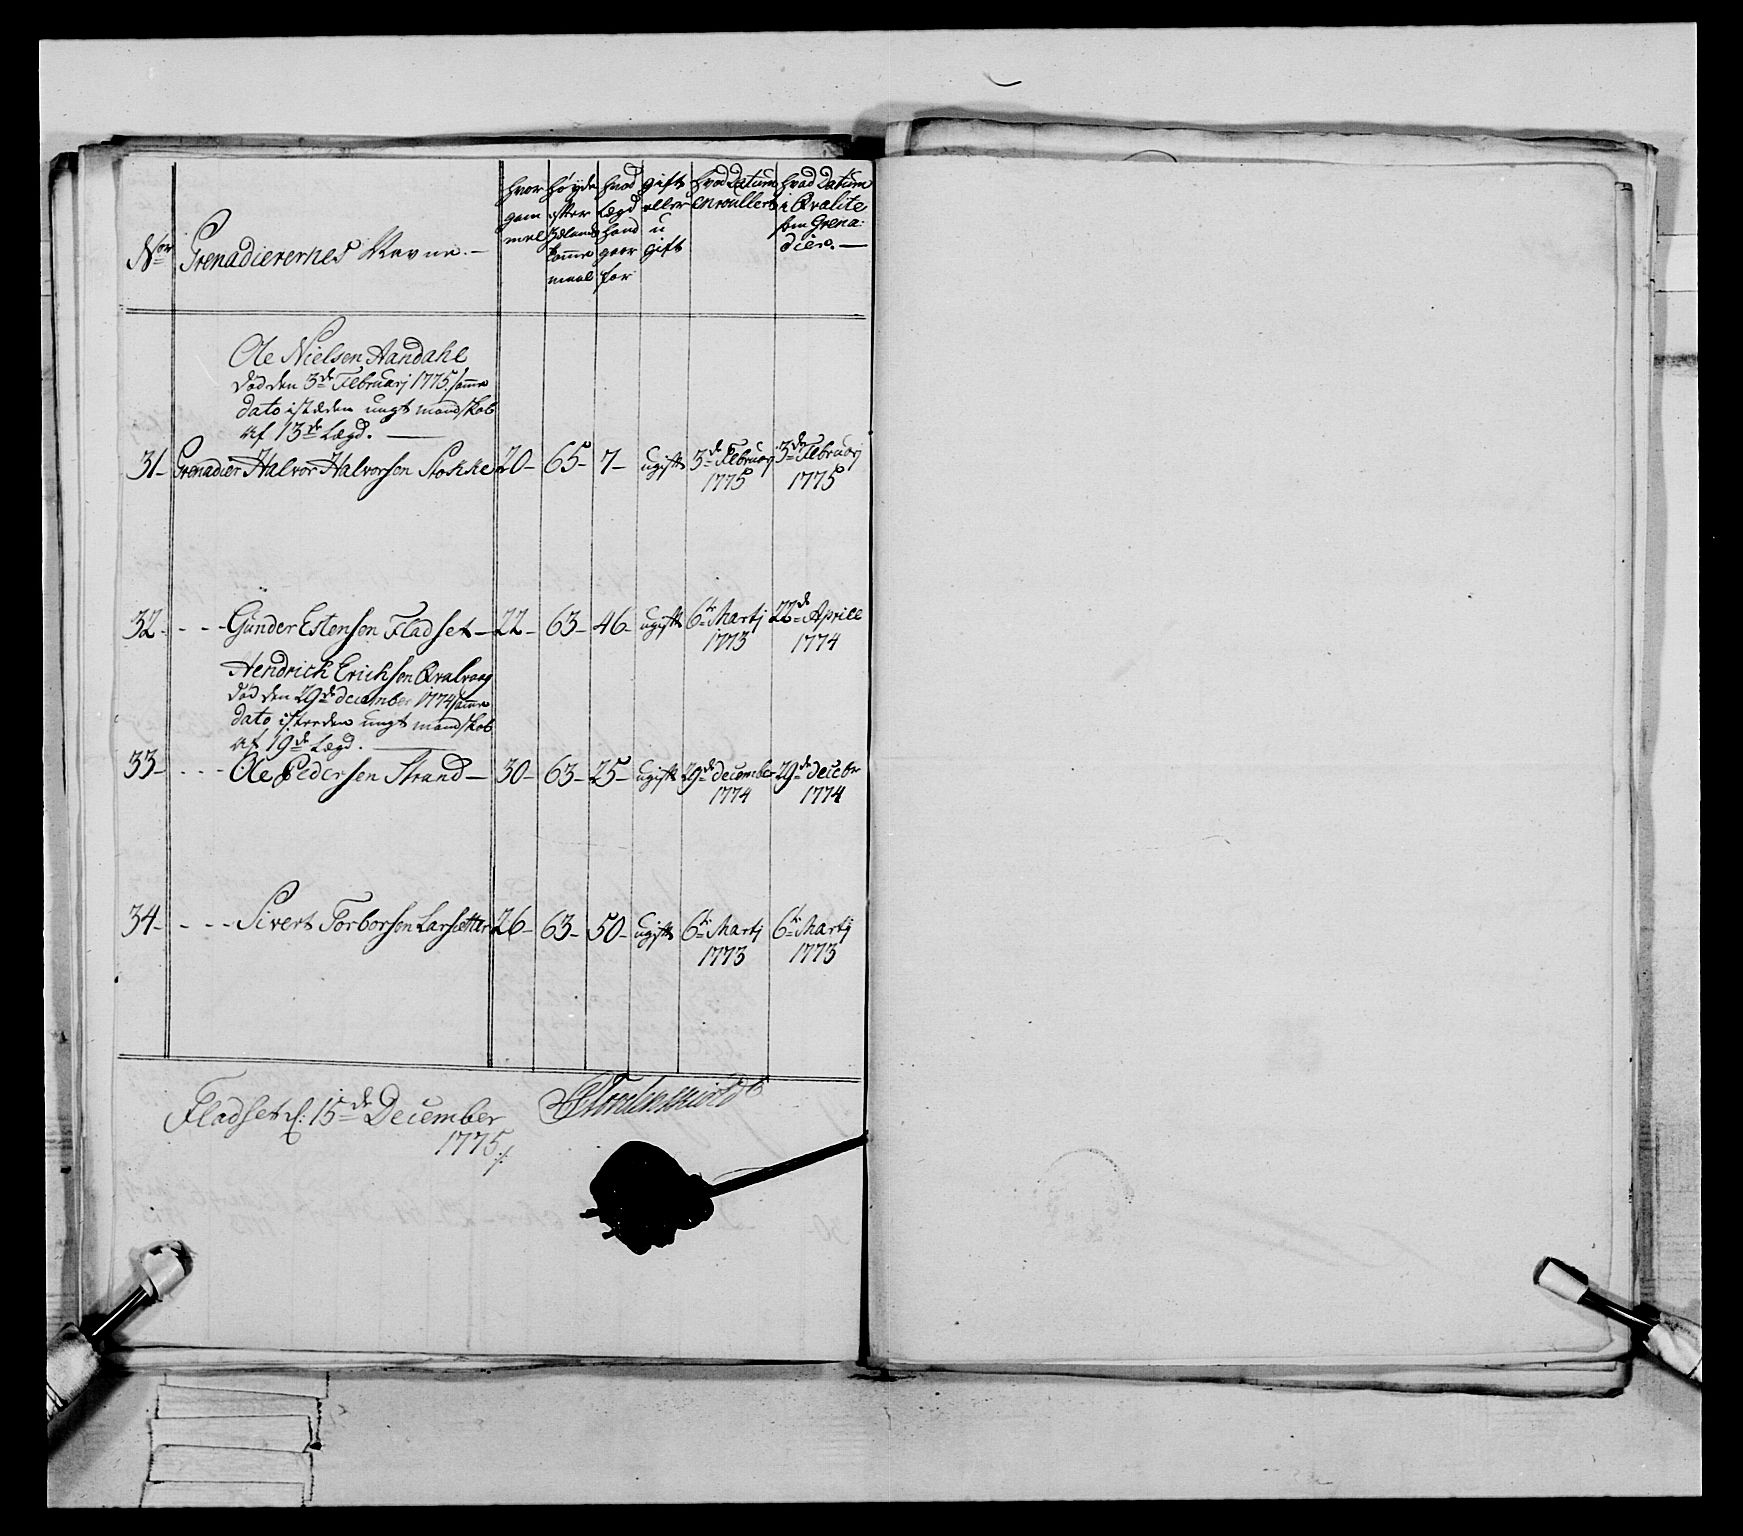 No͞r Grenadierernes Navne. —
hvor gam mel
høyde efter Siælands tomme maal
hvad Lægd hand giør for
gift eller u gift
hvad Datum enroullert
hvad Datum i Qvalite som Grena: dier. —
Ole Nielsen Aandahl
død den 3de Februarj 1775. samme
dato isteden ungt mandskab
af 13de Lægd. —
31 – Grenadier Halvor Halvorsen Stokke 20 – 65 – 7 – ugift 3de Februarj 3de Februarj
1775 1775
32 - - - Gunder Estensen Fladset – 22 – 63 – 46 – ugift 6te Martj 22de Aprill
1773 1774
Hendrich Erichsen Qvalvaag
død den 29de december 1774 samme
dato isteden ungt mandskab
af 19de Lægd. —
33 – - - - Ole Pedersen Strand – 30 – 63 – 25 – ugift 29de december 29de decebr
1774 1774
34 – - - - Sivert Torborsen Larsætter 26 – 63 – 50 – ugift 6te Martj 6te Martj
1773 1773
Fladset d: 15de December
1775 ./.